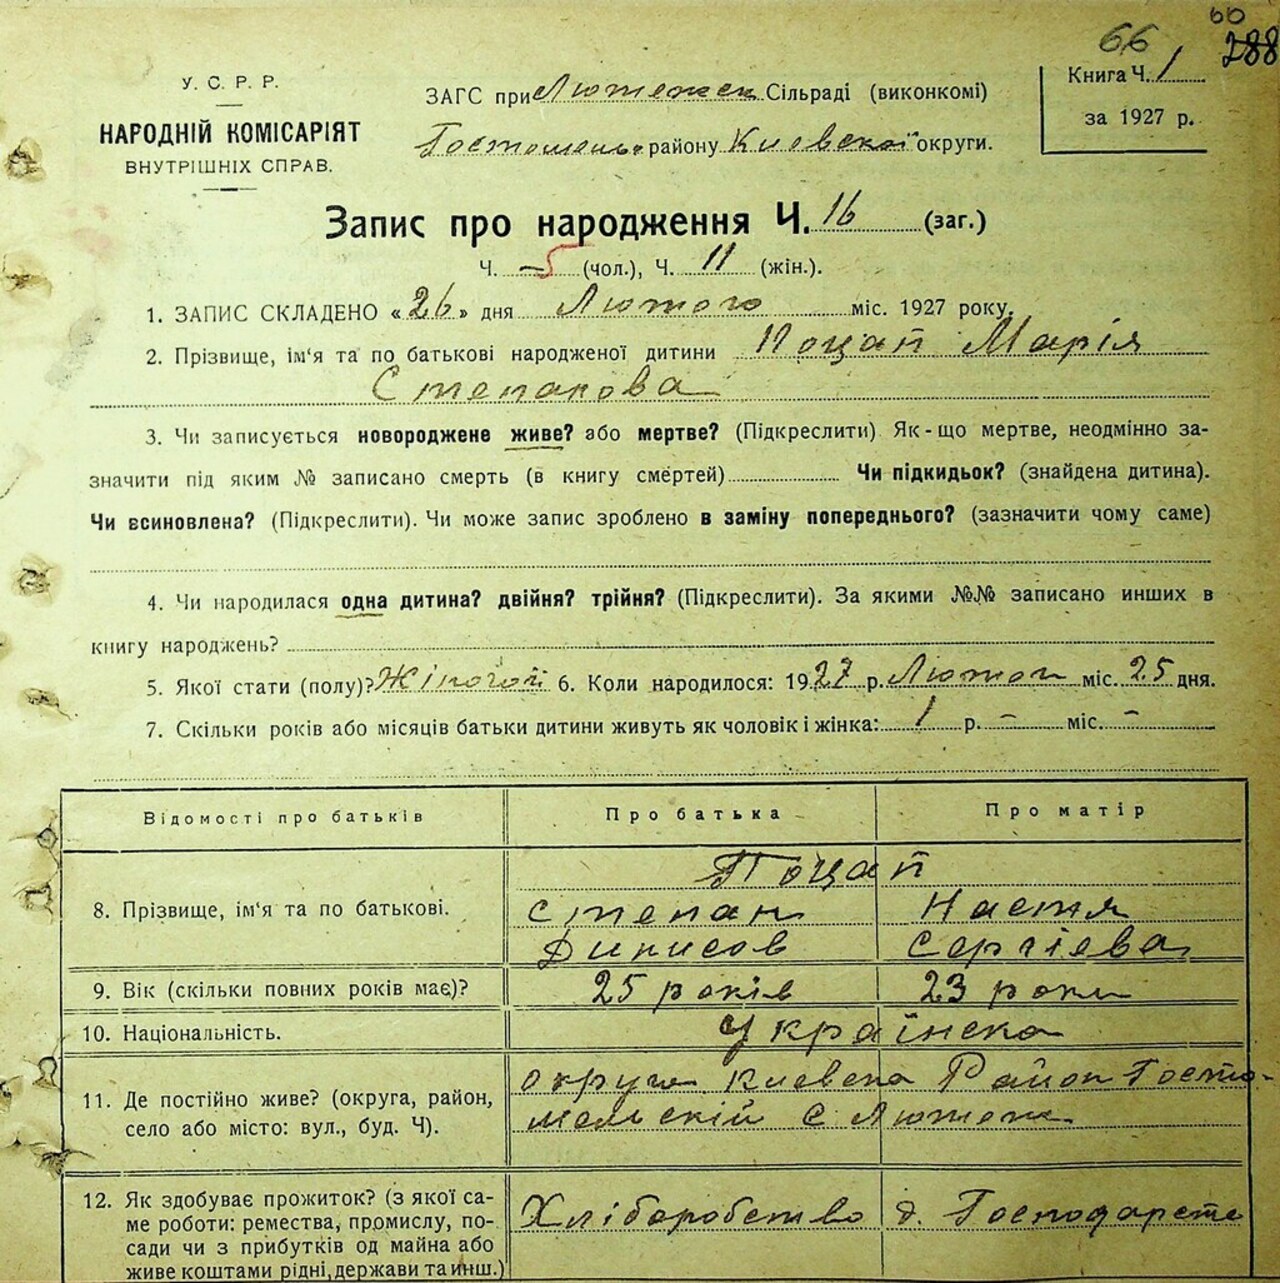 66
66 288
У. С. Р. Р.
НАРОДНІЙ КОМІСАРІЯТ
ВНУТРІШНІХ СПРАВ.
ЗАГС при Лютежск Сільраді (виконкомі)
Гостомель району Киевскоі округи.
Книга Ч. 1
за 1927 р.
Запис про народження Ч. 16 (заг.)
Ч. 5 (чол.), Ч. 11 (жін.).
1. ЗАПИС СКЛАДЕНО «26» дня Лютого міс. 1927 року.
2. Прізвище, ім'я та по батькові народженої дитини Поцап Марія
Степанова
3. Чи записується новороджене живе? або мертве? (Підкреслити) Як-що мертве, неодмінно за-
значити під яким № записано смерть (в книгу смертей) Чи підкидьок? (знайдена дитина).
Чи всиновлена? (Підкреслити). Чи може запис зроблено в заміну попереднього? (зазначити чому саме)
4. Чи народилася одна дитина? двійня? трійня? (Підкреслити). За якими №№ записано инших в
книгу народжень?
5. Якої стати (полу)? Жіночой 6. Коли народилося: 1927 р. Лютого міс. 25 дня.
7. Скільки років або місяців батьки дитини живуть як чоловік і жінка: 1 р. – міс. –
Відомості про батьків Про батька Про матір
Поцап
8. Прізвище, ім'я та по батькові. Степан Настя
Динисов Сергієва
9. Вік (скільки повних років має)? 25 років 23 роки
10. Національність. Українска
11. Де постійно живе? (округа, район, село або місто: вул., буд. Ч). округа Киевска Район Госто-
мельскій С Лютеж
12. Як здобуває прожиток? (з якої са-
ме роботи: ремества, промислу, по-
сади чи з прибутків од майна або
живе коштами рідні, держави та инш.)
Хліборобство д. Господарство